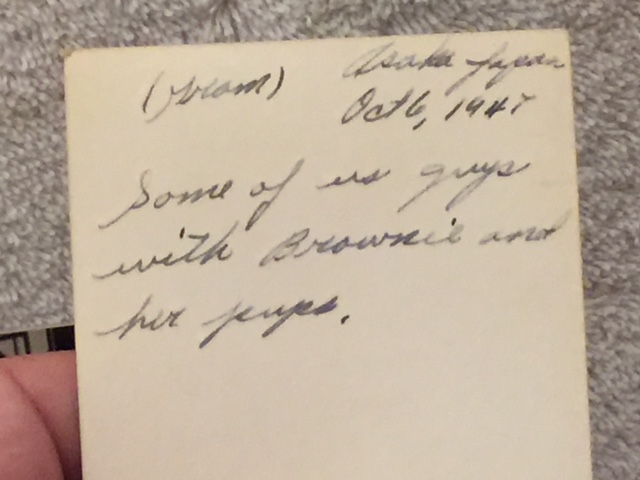 Asaka Japan
Oct 6, 1947
Some of us guys
with Brownie and
her pups.